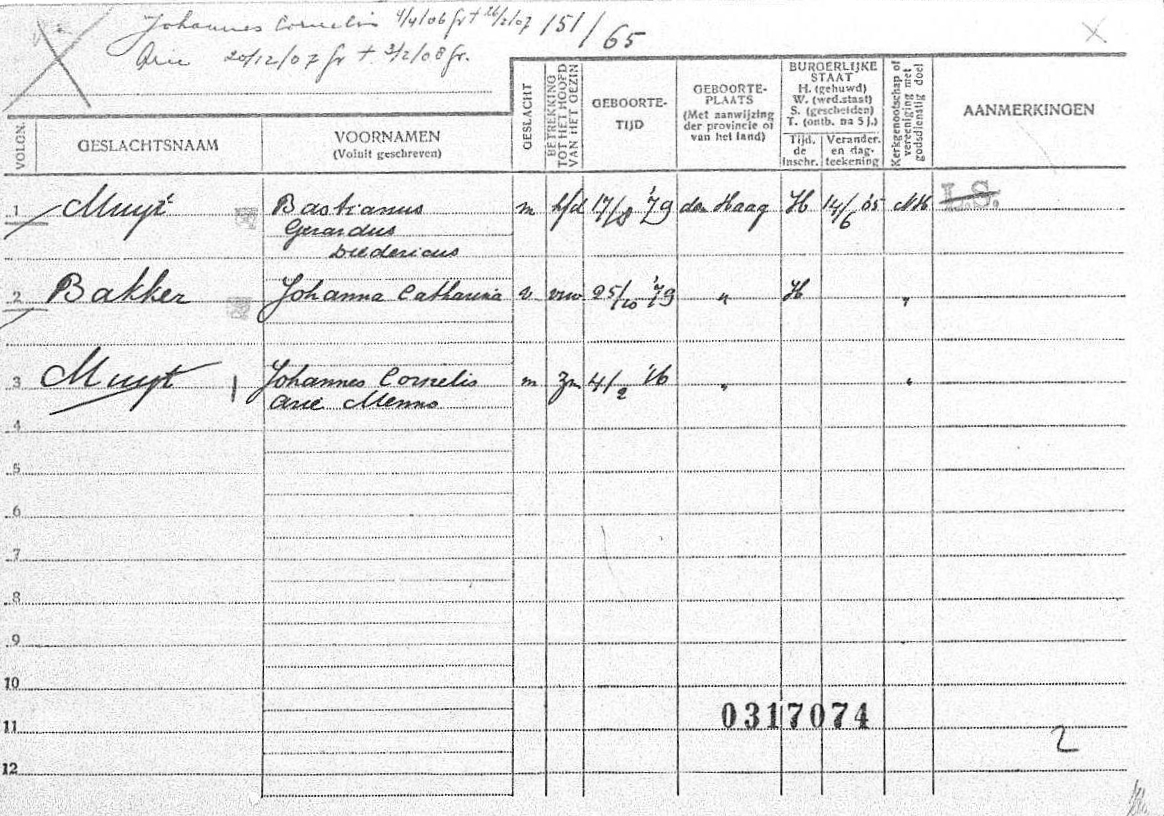 Johannes Cornelis 4/4/06 gr + 26/2/07 151/65
Arie 20/12/07 gr + 3/2/08 gr.
VOLGN.
GESLACHTSNAAM
VOORNAMEN
(Voluit geschreven)
GESLACHT
BETREKKING
TOT HET HOOFD
VAN HET GEZIN
GEBOORTE-
TIJD
GEBOORTE-
PLAATS
(Met aanwijzing
der provincie of
van het land)
BURGERLIJKE
STAAT
H. (gehuwd)
W. (wed. staat)
S. (gescheiden)
T. (ontb. na 5 j.)
Tijd.
de
inschr.
Verander.
en dag-
teekening
Kerkgenootschap of
vereeniging met
godsdienstig doel
AANMERKINGEN
1 Muyt Bastianus m hfd 17/8 '79 den Haag H 14/6 '05 NH L.S.
Gerardus
Diedericus
2 Bakker Johanna Catharina v vrw 25/10 '79 " H "
3 Muyt Johannes Cornelis m zn 4/2 '16 " "
Arie Menno
4
5
6
7
8
9
10
0317074
11
2
12